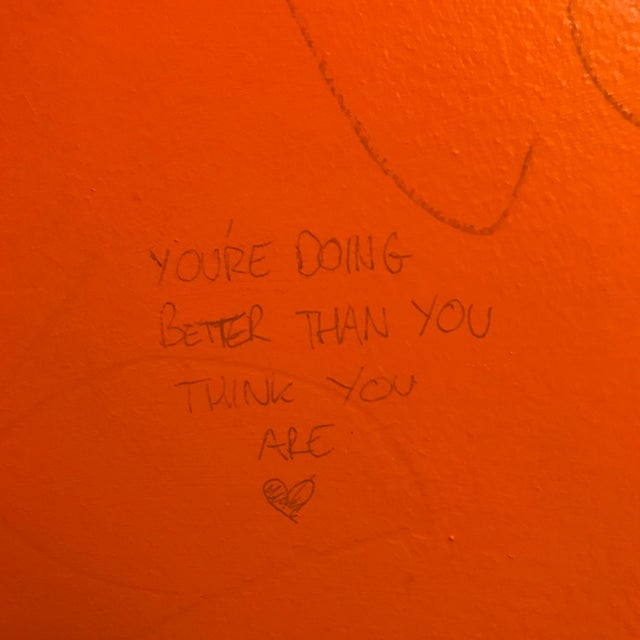 YOU'RE DOING
BETTER THAN YOU
THINK YOU
ARE